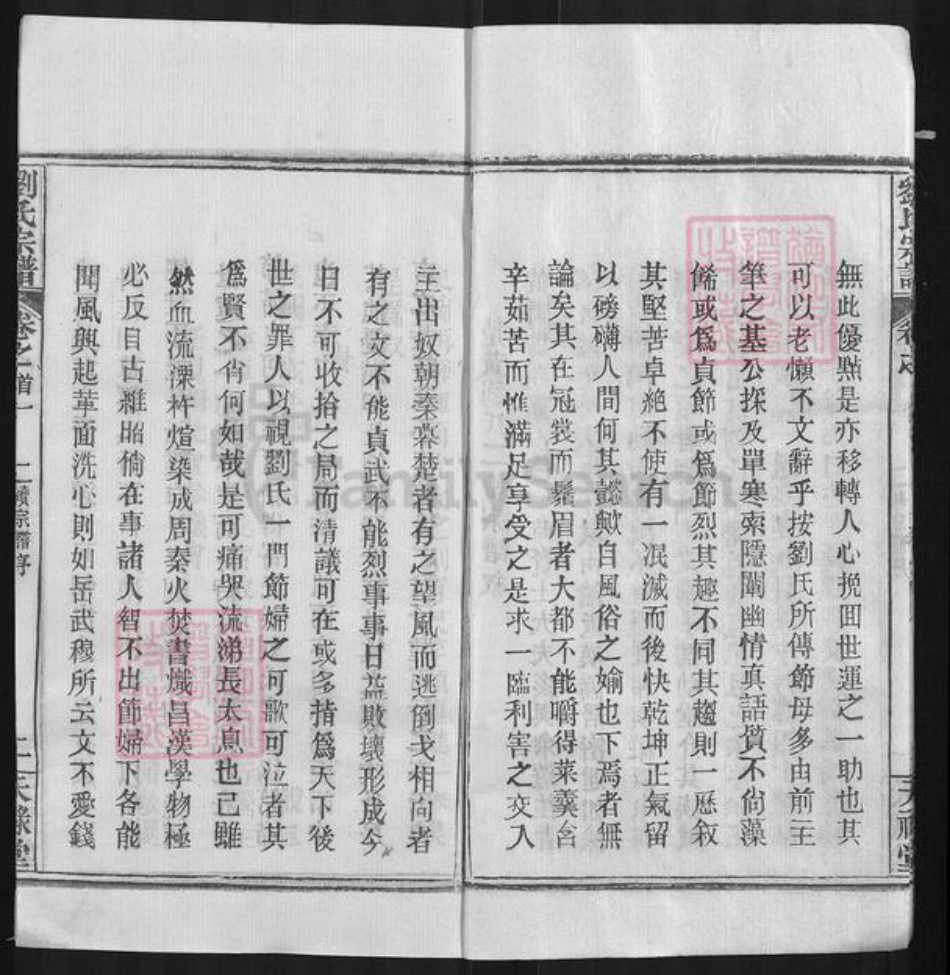 無此優點是亦移轉人心挽回世運之一助也其
可以老懶不文辭乎按劉氏所傳節母多由前主
筆之基公採及單寒索隱闡幽情真語質不尙藻
餙或爲貞節或爲節烈其趣不同其趨則一歷叙
其堅苦卓絶不使有一泯滅而後快乾坤正氣留
以磅礴人間何其懿歟自風俗之媮也下焉者無
論矣其在冠裳而鬚眉者大都不能嚼得菜羹含
辛茹苦而惟滿足享受之是求一臨利害之交入
主出奴朝秦暮楚者有之望風而逃倒戈相向者
有之文不能貞武不能烈事事日益敗壞形成今
日不可收拾之局而清議可在或多指爲天下後
世之罪人以視劉氏一門節婦之可歌可泣者其
爲賢不肖何如哉是可痛哭流涕長太息也已雖
然血流漂杵煊染成周秦火焚書熾昌漢學物極
必反自古維昭倘在事諸人智不出節婦下各能
聞風興起革面洗心則如岳武穆所云文不愛錢
劉氏宗譜
卷之首一
二續宗譜序
二
天祿堂
FamilySearch